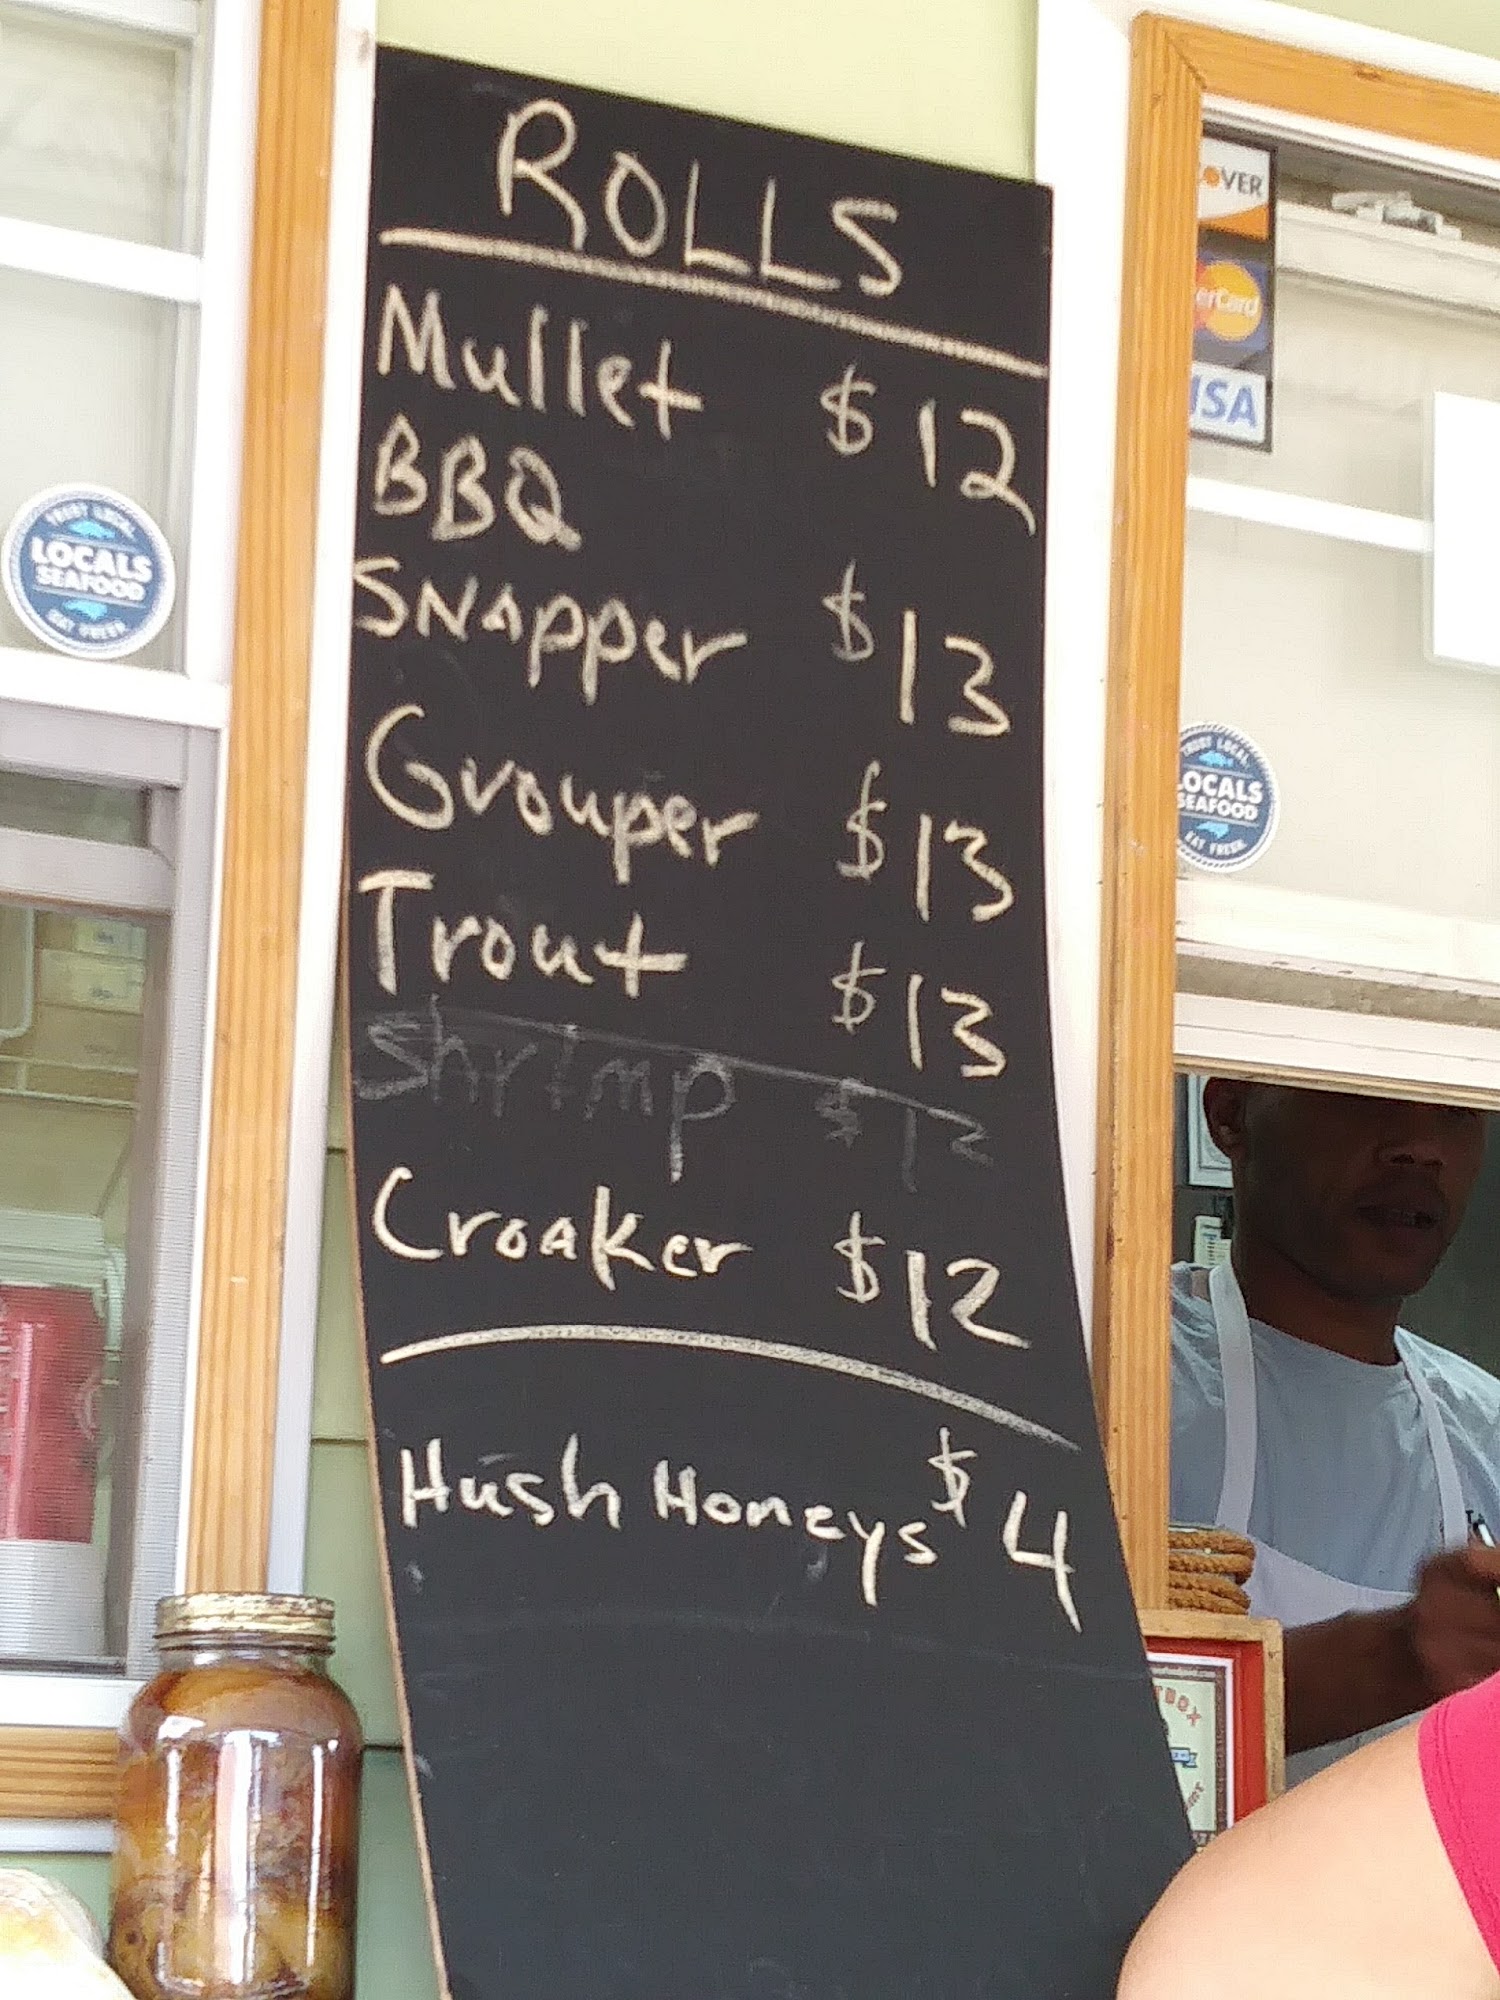 ROLLS
Mullet $12
BBQ
SNApper $13
Grouper $13
Trout $13
Shrimp $12
Croaker $12
Hush Honeys $4
TRUST LOCAL
LOCALS
SEAFOOD
EAT FRESH
OVER
erCard
ISA
TRUST LOCAL
OCALS
SEAFOOD
EAT FRESH